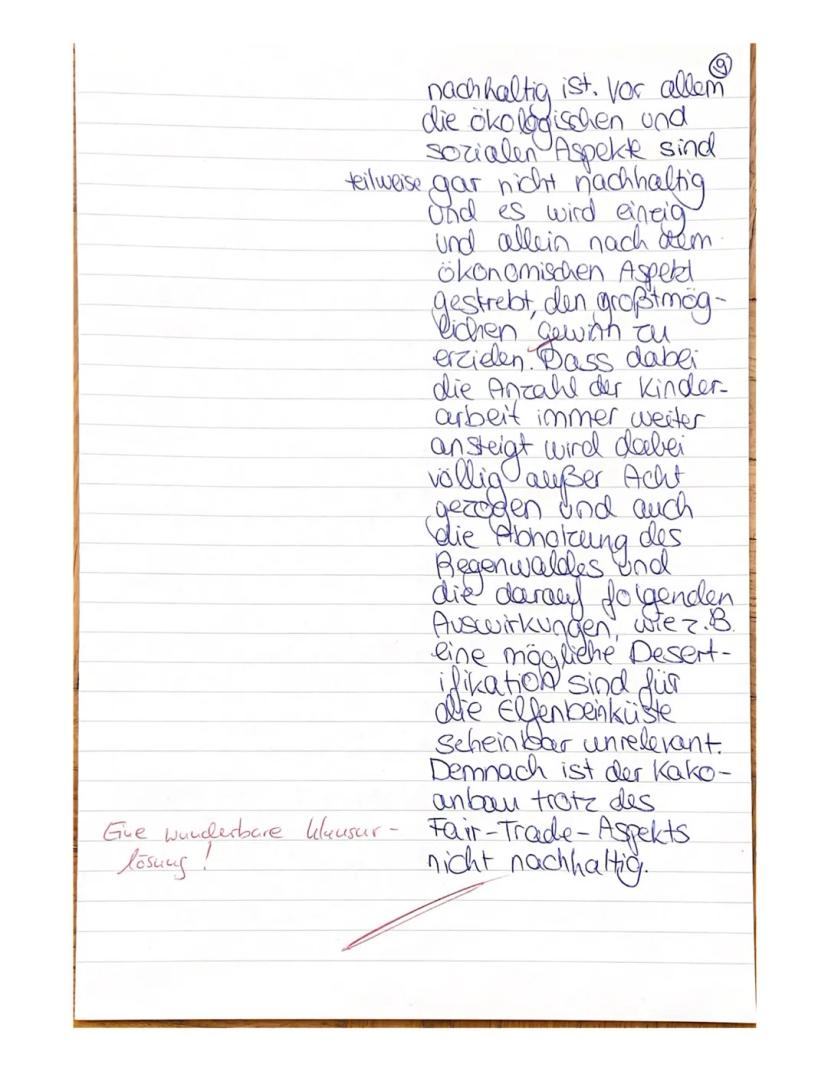 9
nachhaltig ist. Vor allem
die ökologischen und
sozialen Aspekte sind
teilweise gar nicht nachhaltig
und es wird einzig
und allein nach dem
ökonomischen Aspekt
gestrebt, den großtmög-
lichen gewinn zu
erzielen. Dass dabei
die Anzahl der Kinder-
arbeit immer weiter
ansteigt wird dabei
völlig außer Acht
gezogen und auch
die Abholzung des
Regenwaldes und
die darauf folgenden
Auswirkungen, wie z.B.
eine mögliche Desert-
ifikation sind für
die Elfenbeinküste
scheinbar unrelevant.
Demnach ist der Kako-
anbau trotz des
Fair-Trade-Aspekts
nicht nachhaltig.
Eine wunderbare Klausur-
lösung!